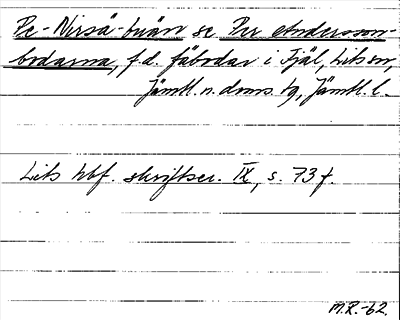 Pe-Nirsä-buan se Per Andersson-
bodarna, f.d. fäbodar i Fjäl, Lits sn,
Jämtl. n. doms. tg, Jämtl. l.
Lits hbf. skriftser. IX, s. 73 f.
M.R.-62.